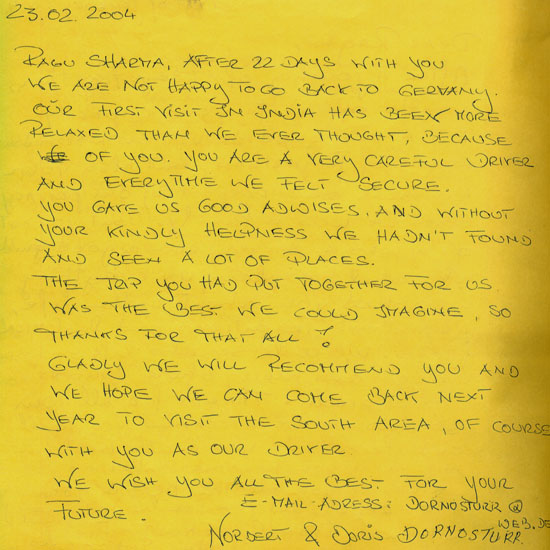 23.02.2004
RAGU SHARMA, AFTER 22 DAYS WITH YOU
WE ARE NOT HAPPY TO GO BACK TO GERMANY.
OUR FIRST VISIT IN INDIA HAS BEEN MORE
RELAXED THAN WE EVER THOUGHT, BECAUSE
OF YOU. YOU ARE A VERY CAREFUL DRIVER
AND EVERYTIME WE FELT SECURE.
YOU GAVE US GOOD ADWISES, AND WITHOUT
YOUR KINDLY HELPNESS WE HADN'T FOUND
AND SEEN A LOT OF PLACES.
THE TRIP YOU HAD PUT TOGETHER FOR US
WAS THE BEST WE COULD IMAGINE, SO
THANKS FOR THAT ALL!
GLADLY WE WILL RECOMMEND YOU AND
WE HOPE WE CAN COME BACK NEXT
YEAR TO VISIT THE SOUTH AREA, OF COURSE
WITH YOU AS OUR DRIVER
WE WISH YOU ALL THE BEST FOR YOUR
FUTURE.
E-MAIL-ADRESS: DORNOSTURR@
WEB.DE
NORBERT & DORIS DORNOSTURR.